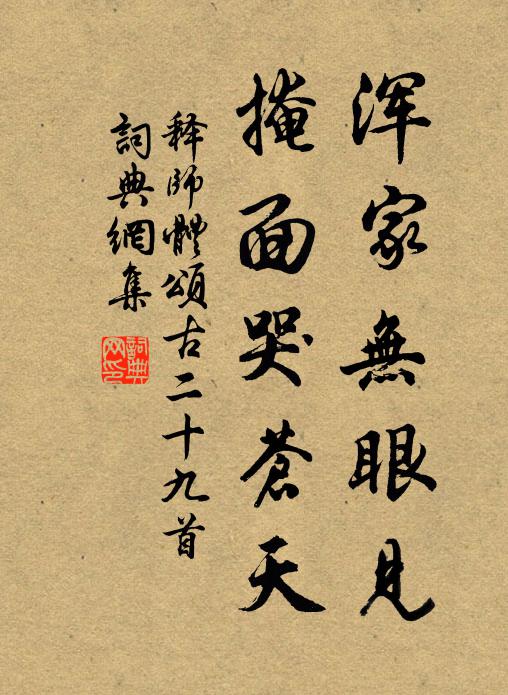 浑家無眼見
掩面哭蒼天
释師體頌古二十九首
詞典網集
詞典網印